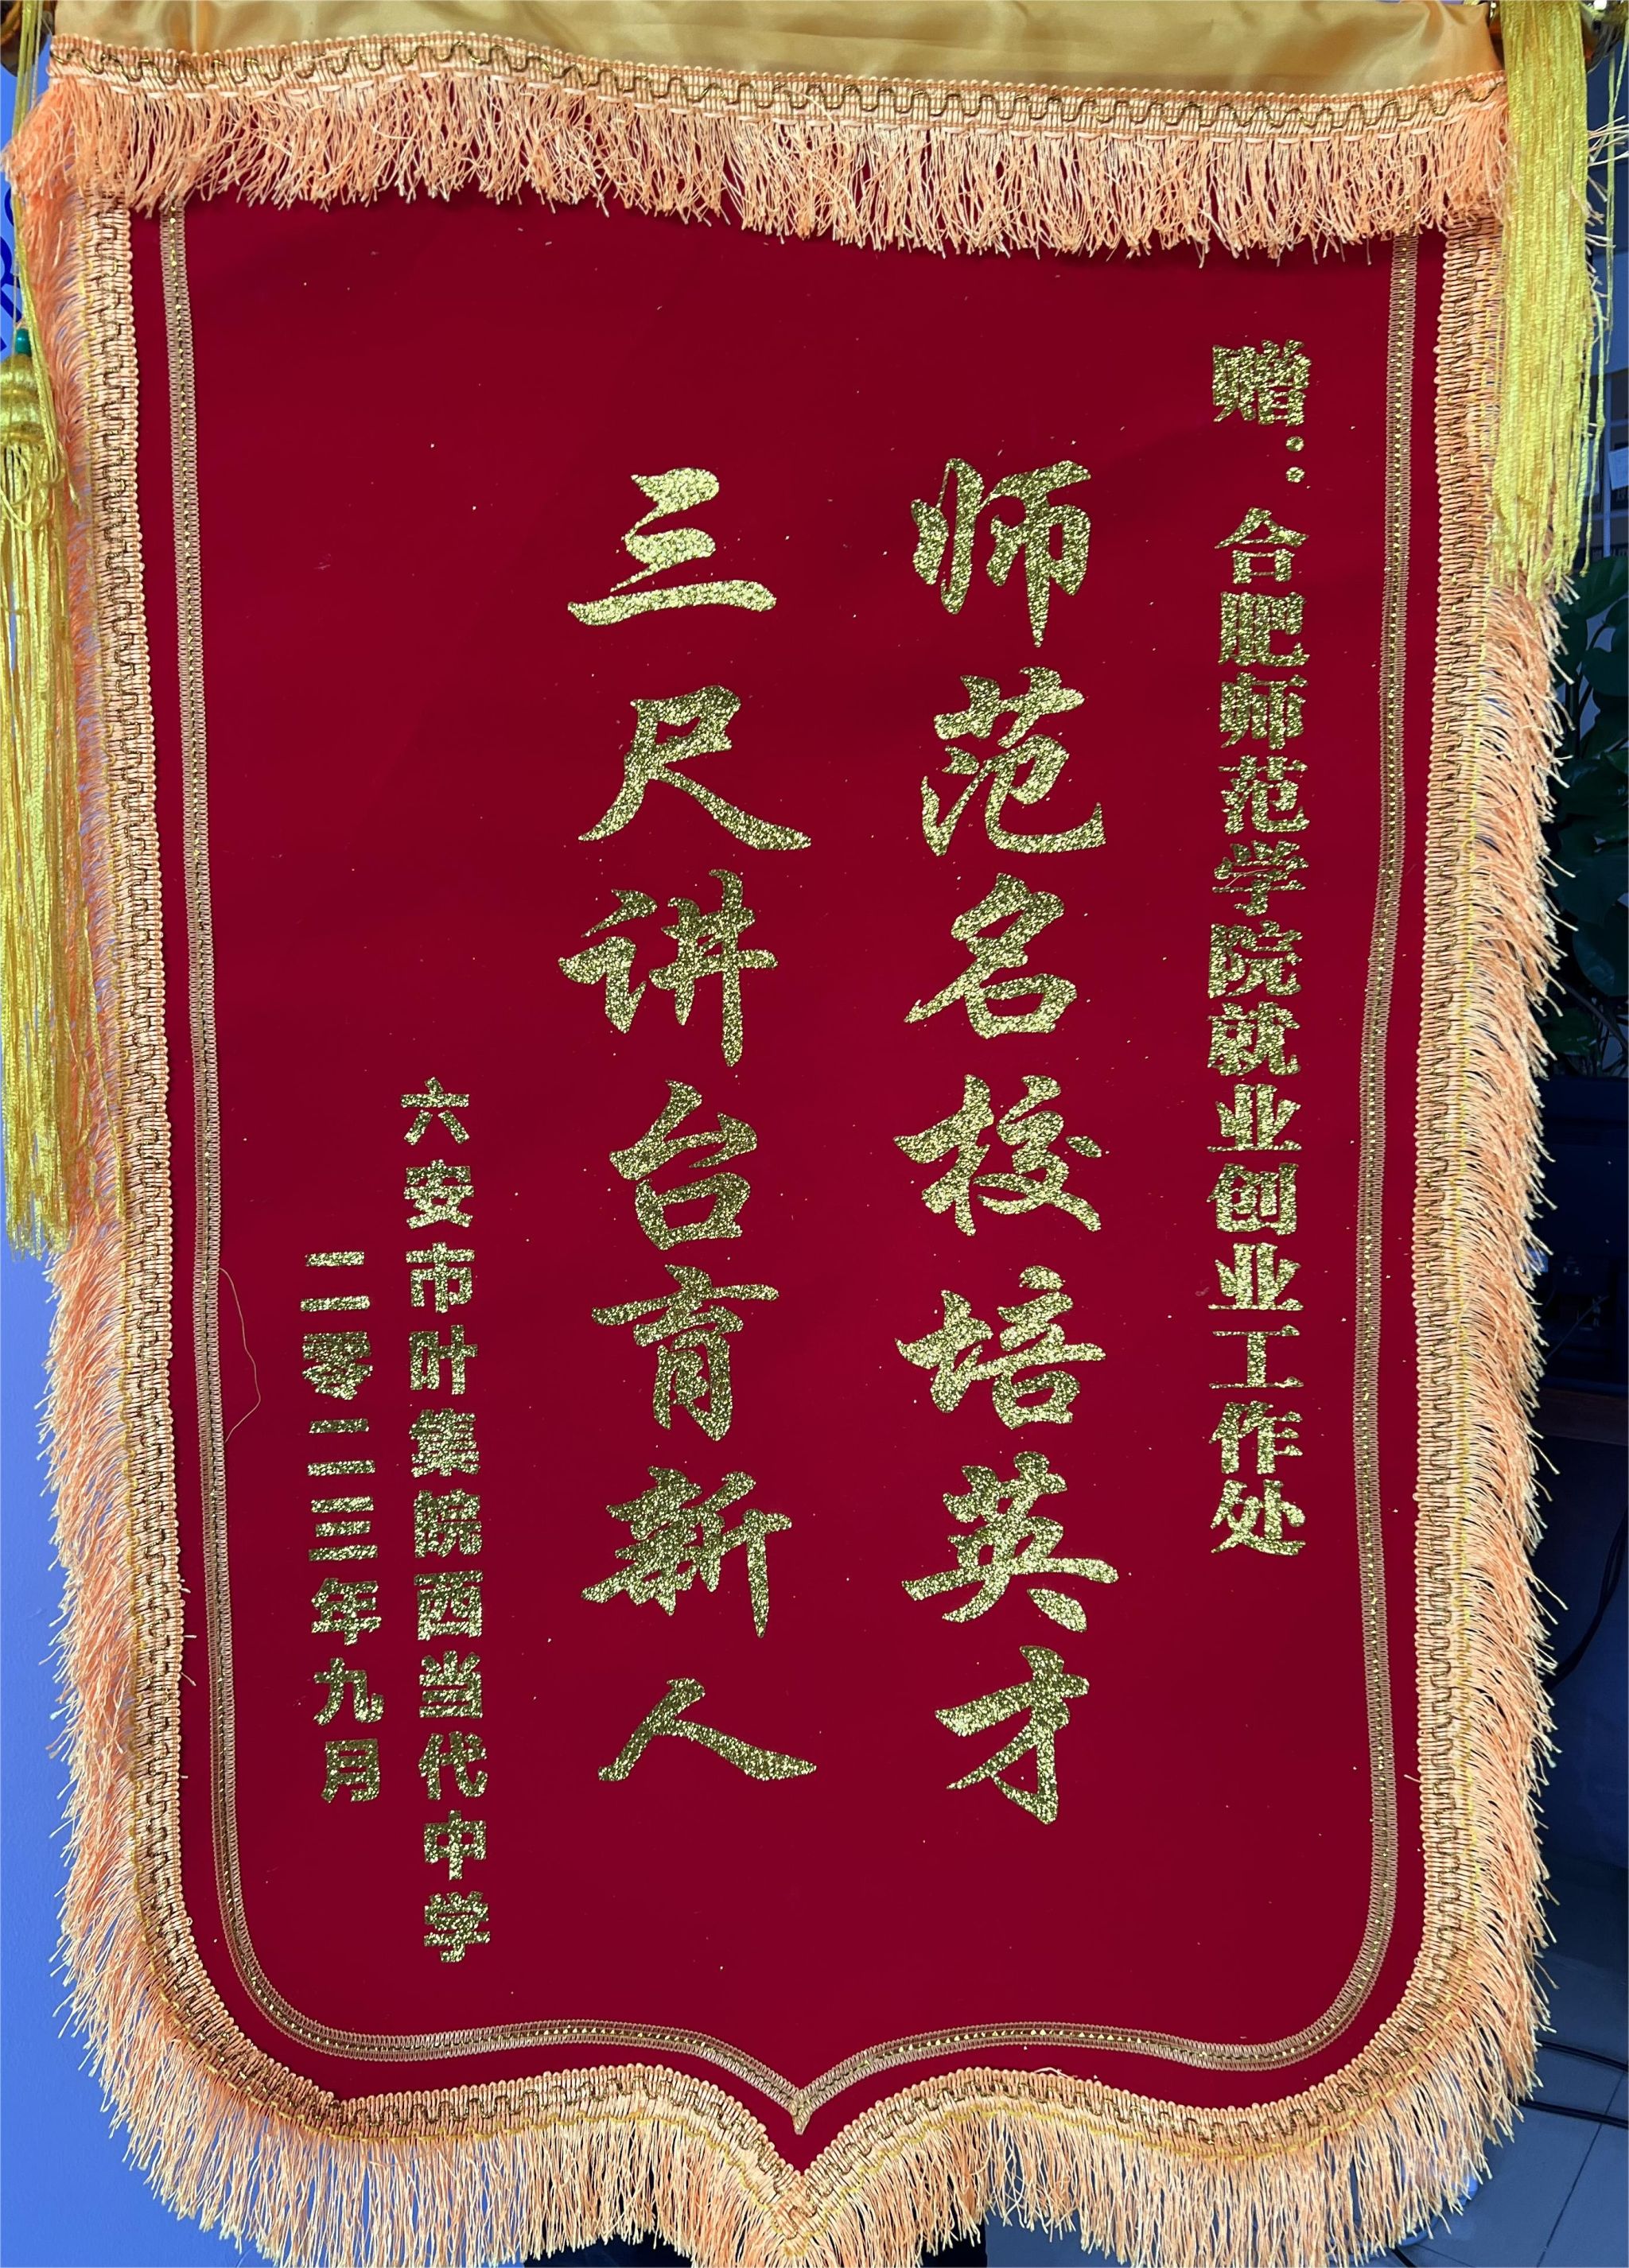 赠：合肥师范学院就业创业工作处
师范名校培英才
三尺讲台育新人
六安市叶集皖西当代中学
二零二三年九月